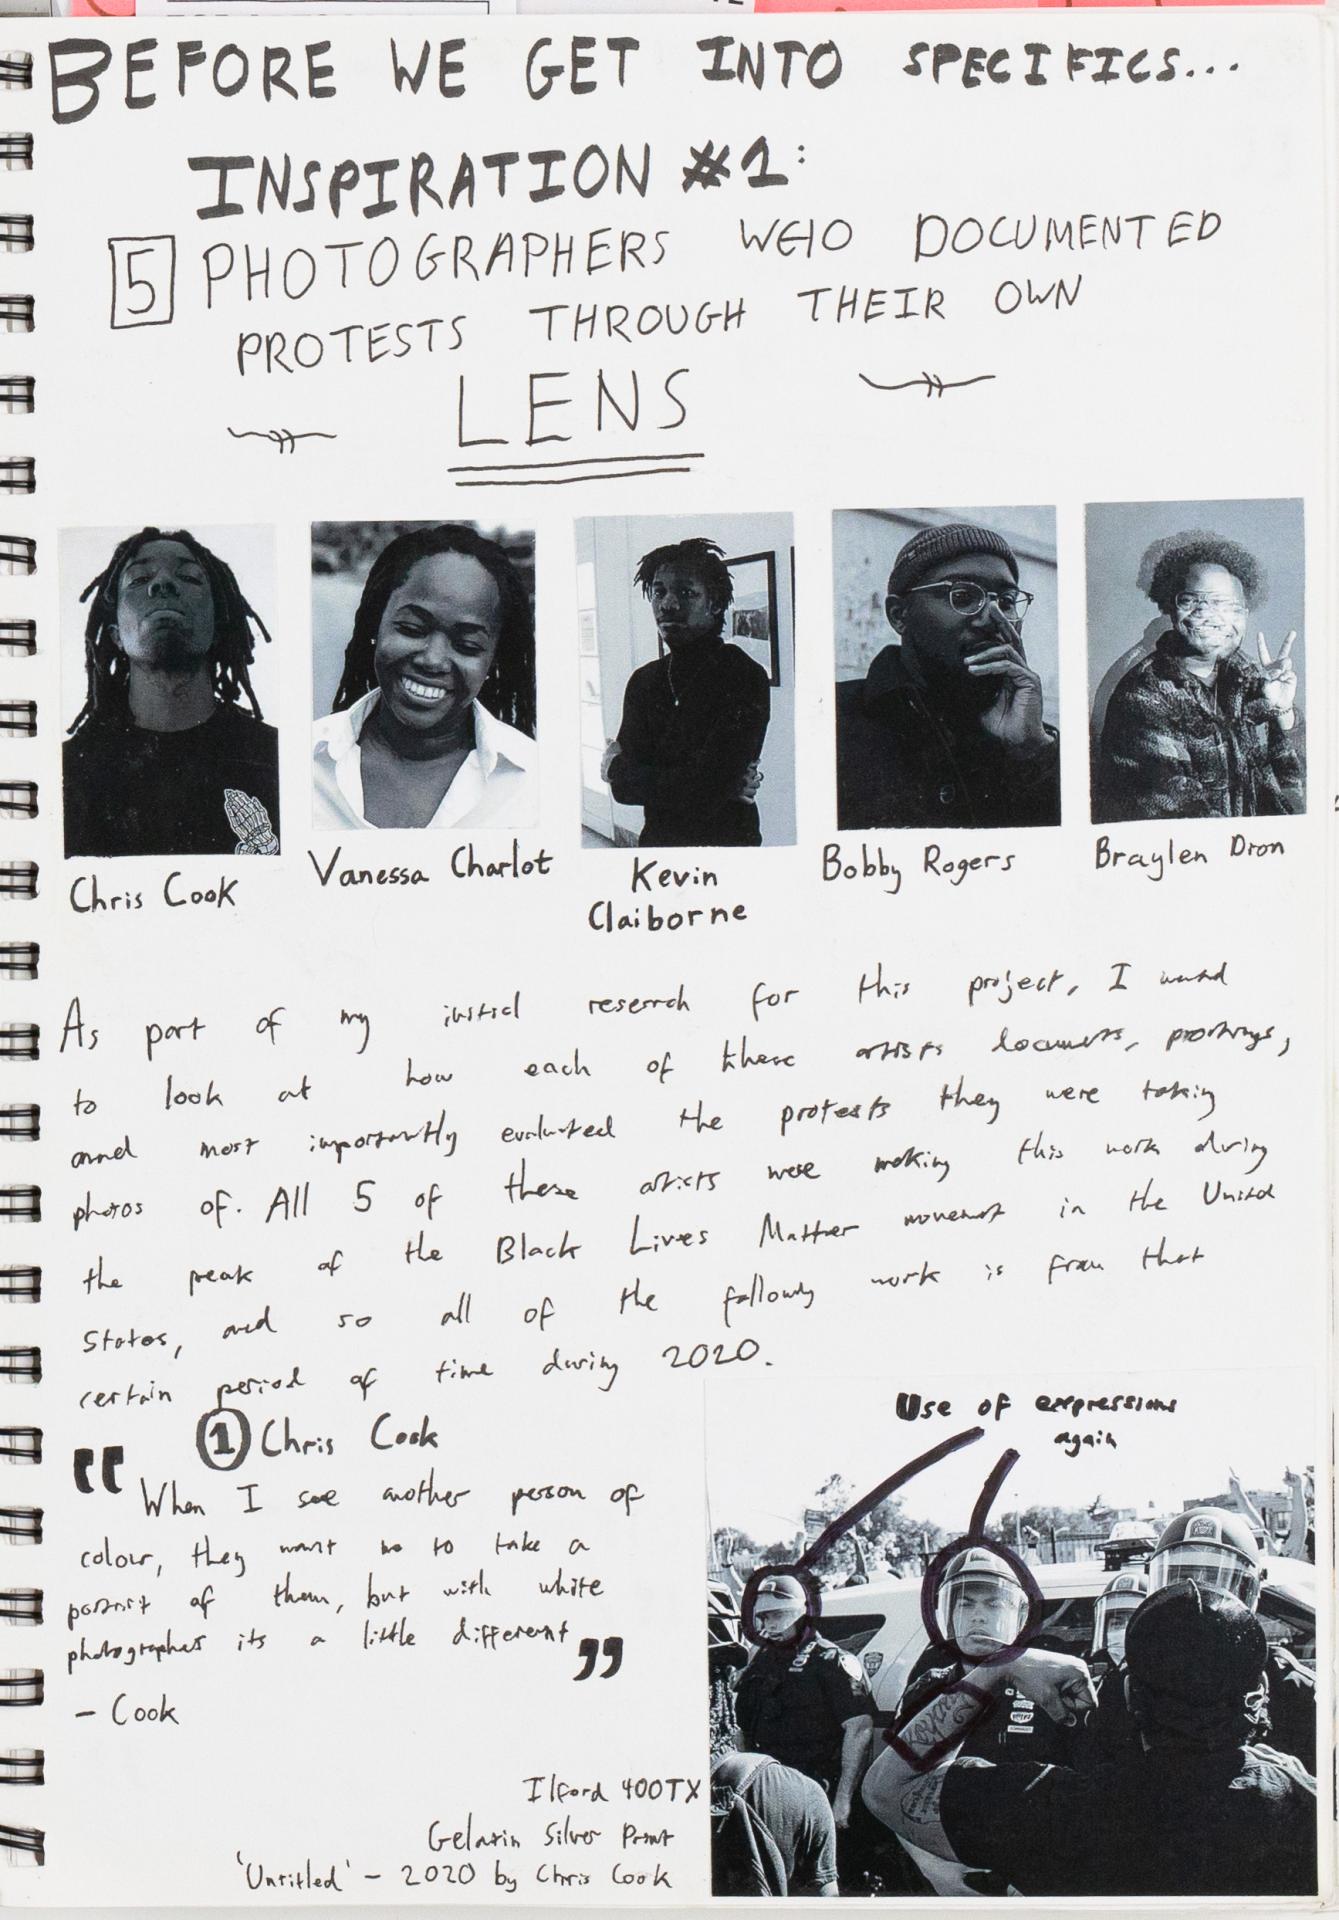 BEFORE WE GET INTO SPECIFICS...
INSPIRATION #1:
5 PHOTOGRAPHERS WHO DOCUMENTED
PROTESTS THROUGH THEIR OWN
LENS
Chris Cook
Vanessa Charlot
Kevin
Claiborne
Bobby Rogers
Braylen Dion
As part of my initial research for this project, I wanted
to look at how each of these artists documents, portrays,
and most importantly evaluated the protests they were taking
photos of. All 5 of these artists were making this work during
the peak of the Black Lives Matter movement in the United
States, and so all of the following work is from that
certain period of time during 2020.
1 Chris Cook
"When I see another person of
colour, they want me to take a
portrait of them, but with white
photographers its a little different"
- Cook
Use of expressions
again
Ilford 400TX
Gelatin Silver Print
'Untitled' - 2020 by Chris Cook